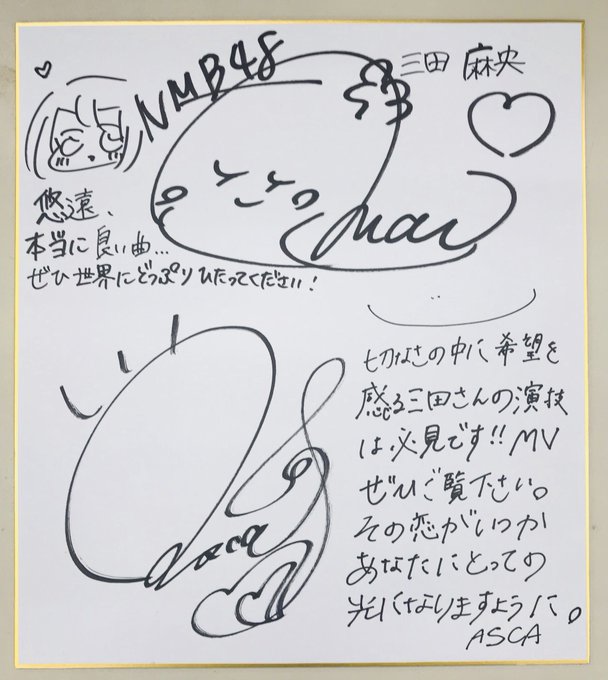 NMB48
三田 麻央
Mao
悠遠、
本当に良い曲…
ぜひ世界にどっぷりひたってください!
切なさの中に希望を
感じる三田さんの演技
は必見です!! MV
ぜひご覧下さい。
その恋がいつか
あなたにとっての
光になりますように。
ASCA
Asca